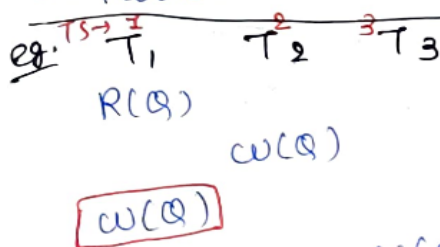 eg. TS→ 1 T1 2 T2 3 T3
R(Q)
W(Q)
W(Q)